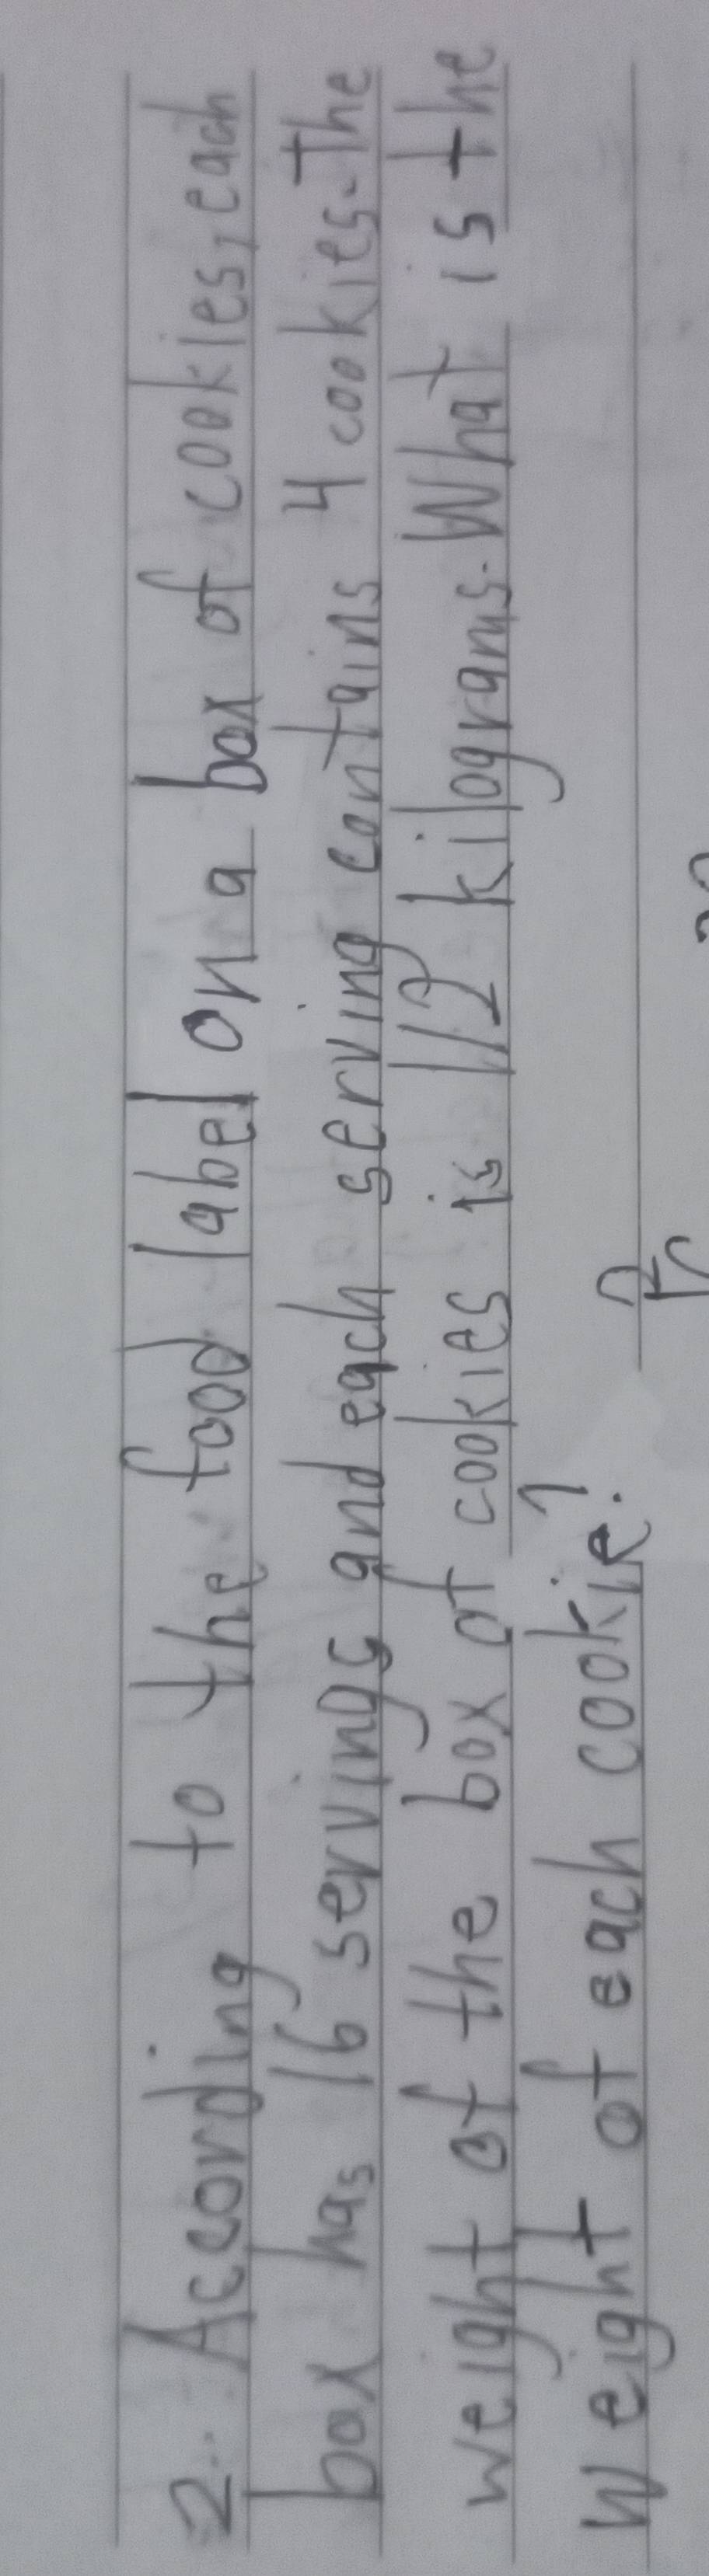 2. According to the food label on a box of cookies, each
box has 16 servings and each serving contains 4 cookies. The
weight of the box of cookies is 1/2 kilograms. What is the
weight of each cookie?